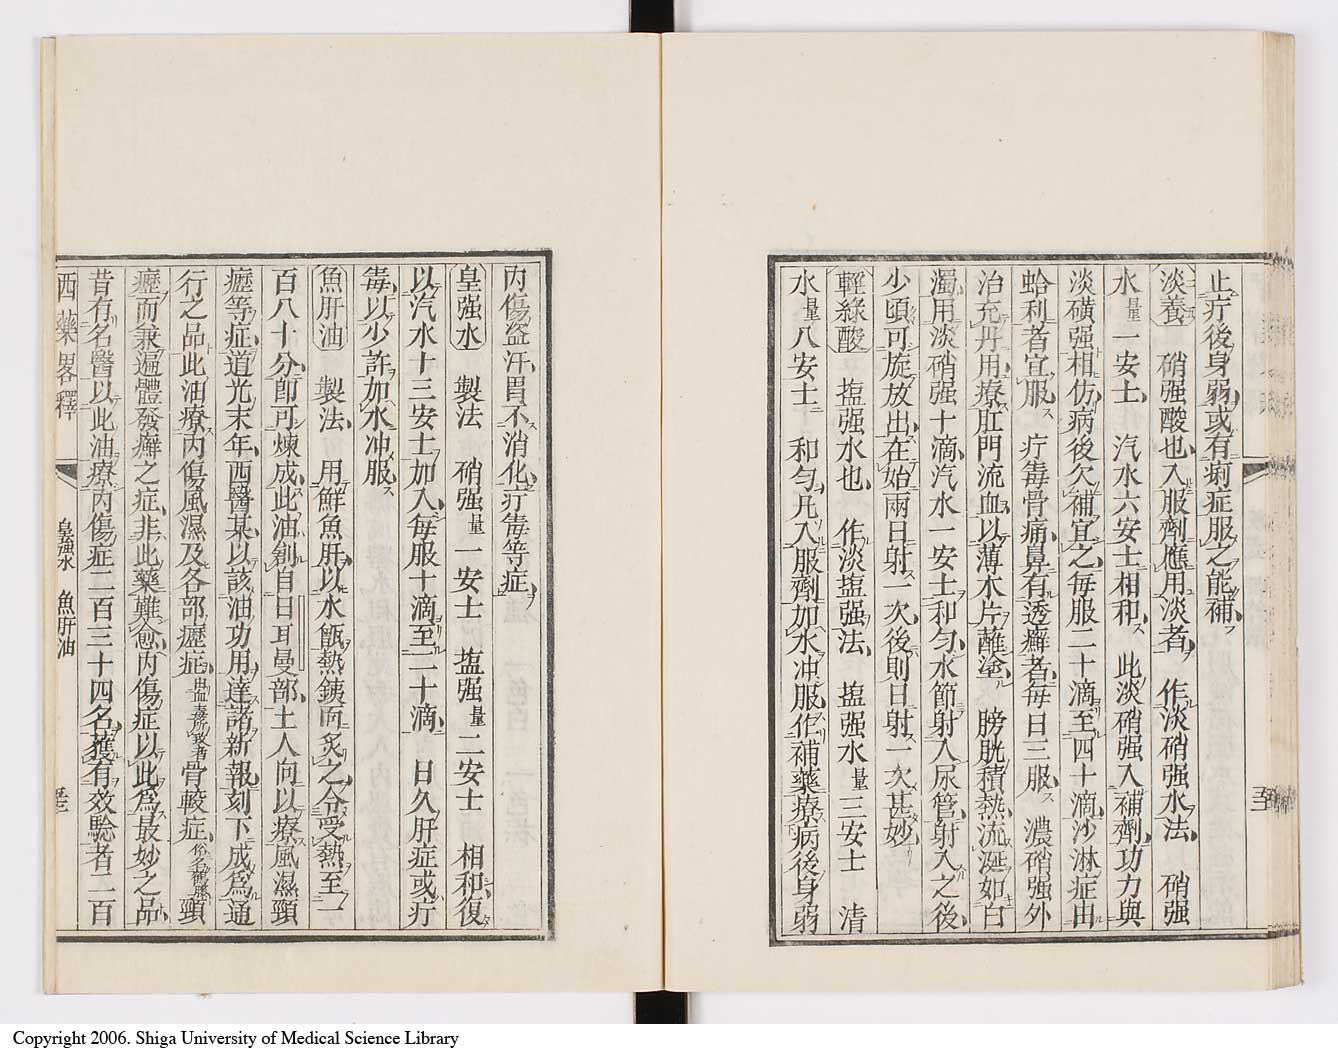 止疔後身弱或有痢症服之能補
淡養 硝强酸也入服劑應用淡者 作淡硝强水法 硝强
水量一安士 汽水六安士相和 此淡硝强入補劑功力與
淡磺强相仿病後欠補宜之每服二十滴至四十滴沙淋症由
蛤利者宜服 疔毒骨痛鼻有透癬者每日三服 濃硝强外
治充丹用療肛門流血以薄木片蘸塗 膀胱積熱流涎如白
濁用淡硝强十滴汽水一安士和勻水節射入尿管射入之後
少頃可旋放出在始兩日射一次後則日射一次甚妙
輕綠酸 塩强水也 作淡塩强法 塩强水量三安士 清
水量八安士 和勻凡入服劑加水冲服作補藥療病後身弱
内傷盗汗胃不消化疔毒等症
皇强水 製法 硝强量一安士 塩强量二安士 相和復
以汽水十三安士加入每服十滴至二十滴 日久肝症或疔
毒以少許加水冲服
魚肝油 製法 用鮮魚肝以水甑熱銕而炙之令受熱至一
百八十分卽可煉成此油創自日耳曼部土人向以療風濕頸
癧等症道光末年西醫某以該油功用達諸新報刻下成爲通
行之品此油療内傷風濕及各部癧症骨較症俗名鶴膝頸
癧而兼遍體發癬之症非此藥難愈内傷症以此爲最妙之品
昔有名醫以此油療内傷症二百三十四名獲有效驗者二百
西藥畧釋 皇强水 魚肝油